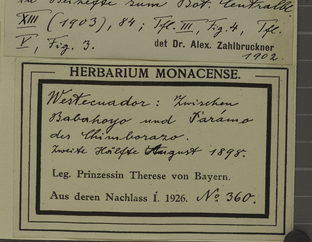 in Beihefte zum Bot. Centralbl.
XIII (1903), 84; Tfl. III, Fig. 4, Tfl.
V, Fig. 3.
det Dr. Alex. Zahlbruckner
1902.
HERBARIUM MONACENSE.
Westecuador: Zwischen
Babahoyo und Páramo
des Chimborazo.
Zweite Hälfte August 1898.
Leg. Prinzessin Therese von Bayern.
Aus deren Nachlass I. 1926. No 360.